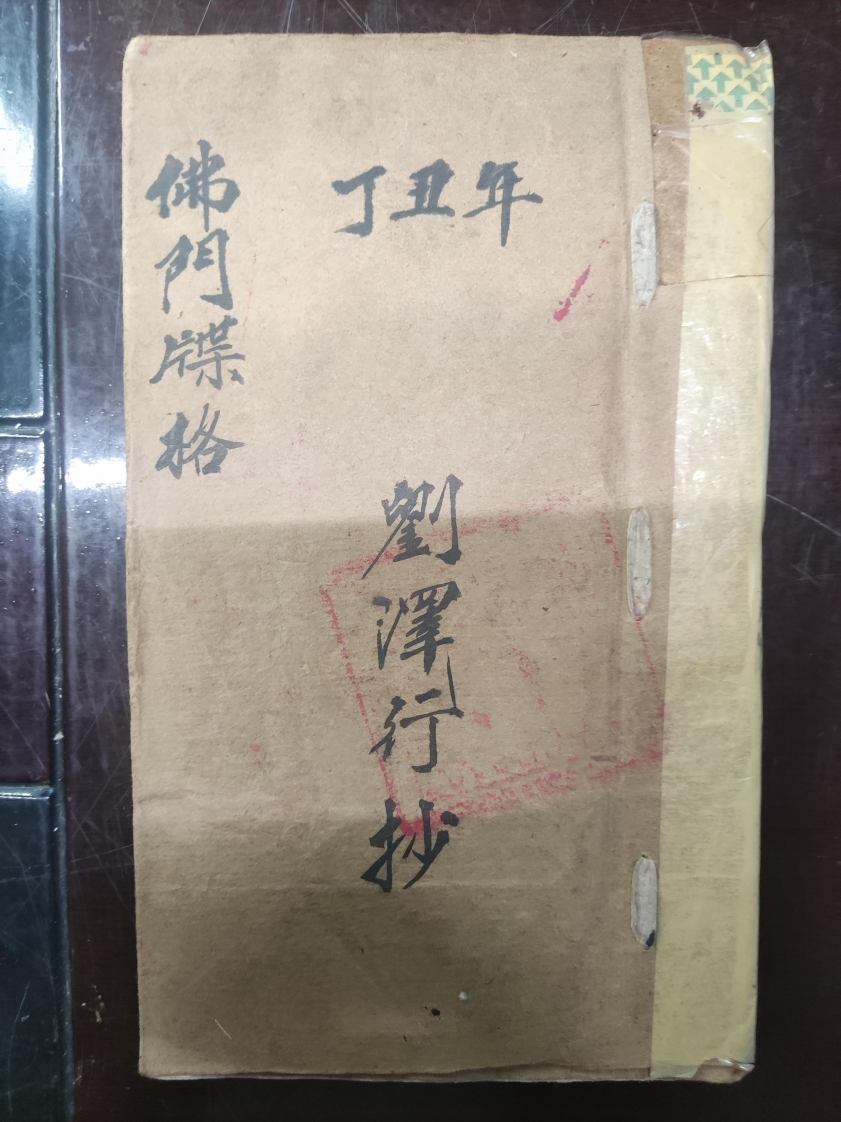 丁丑年
劉澤行抄
佛門牒格